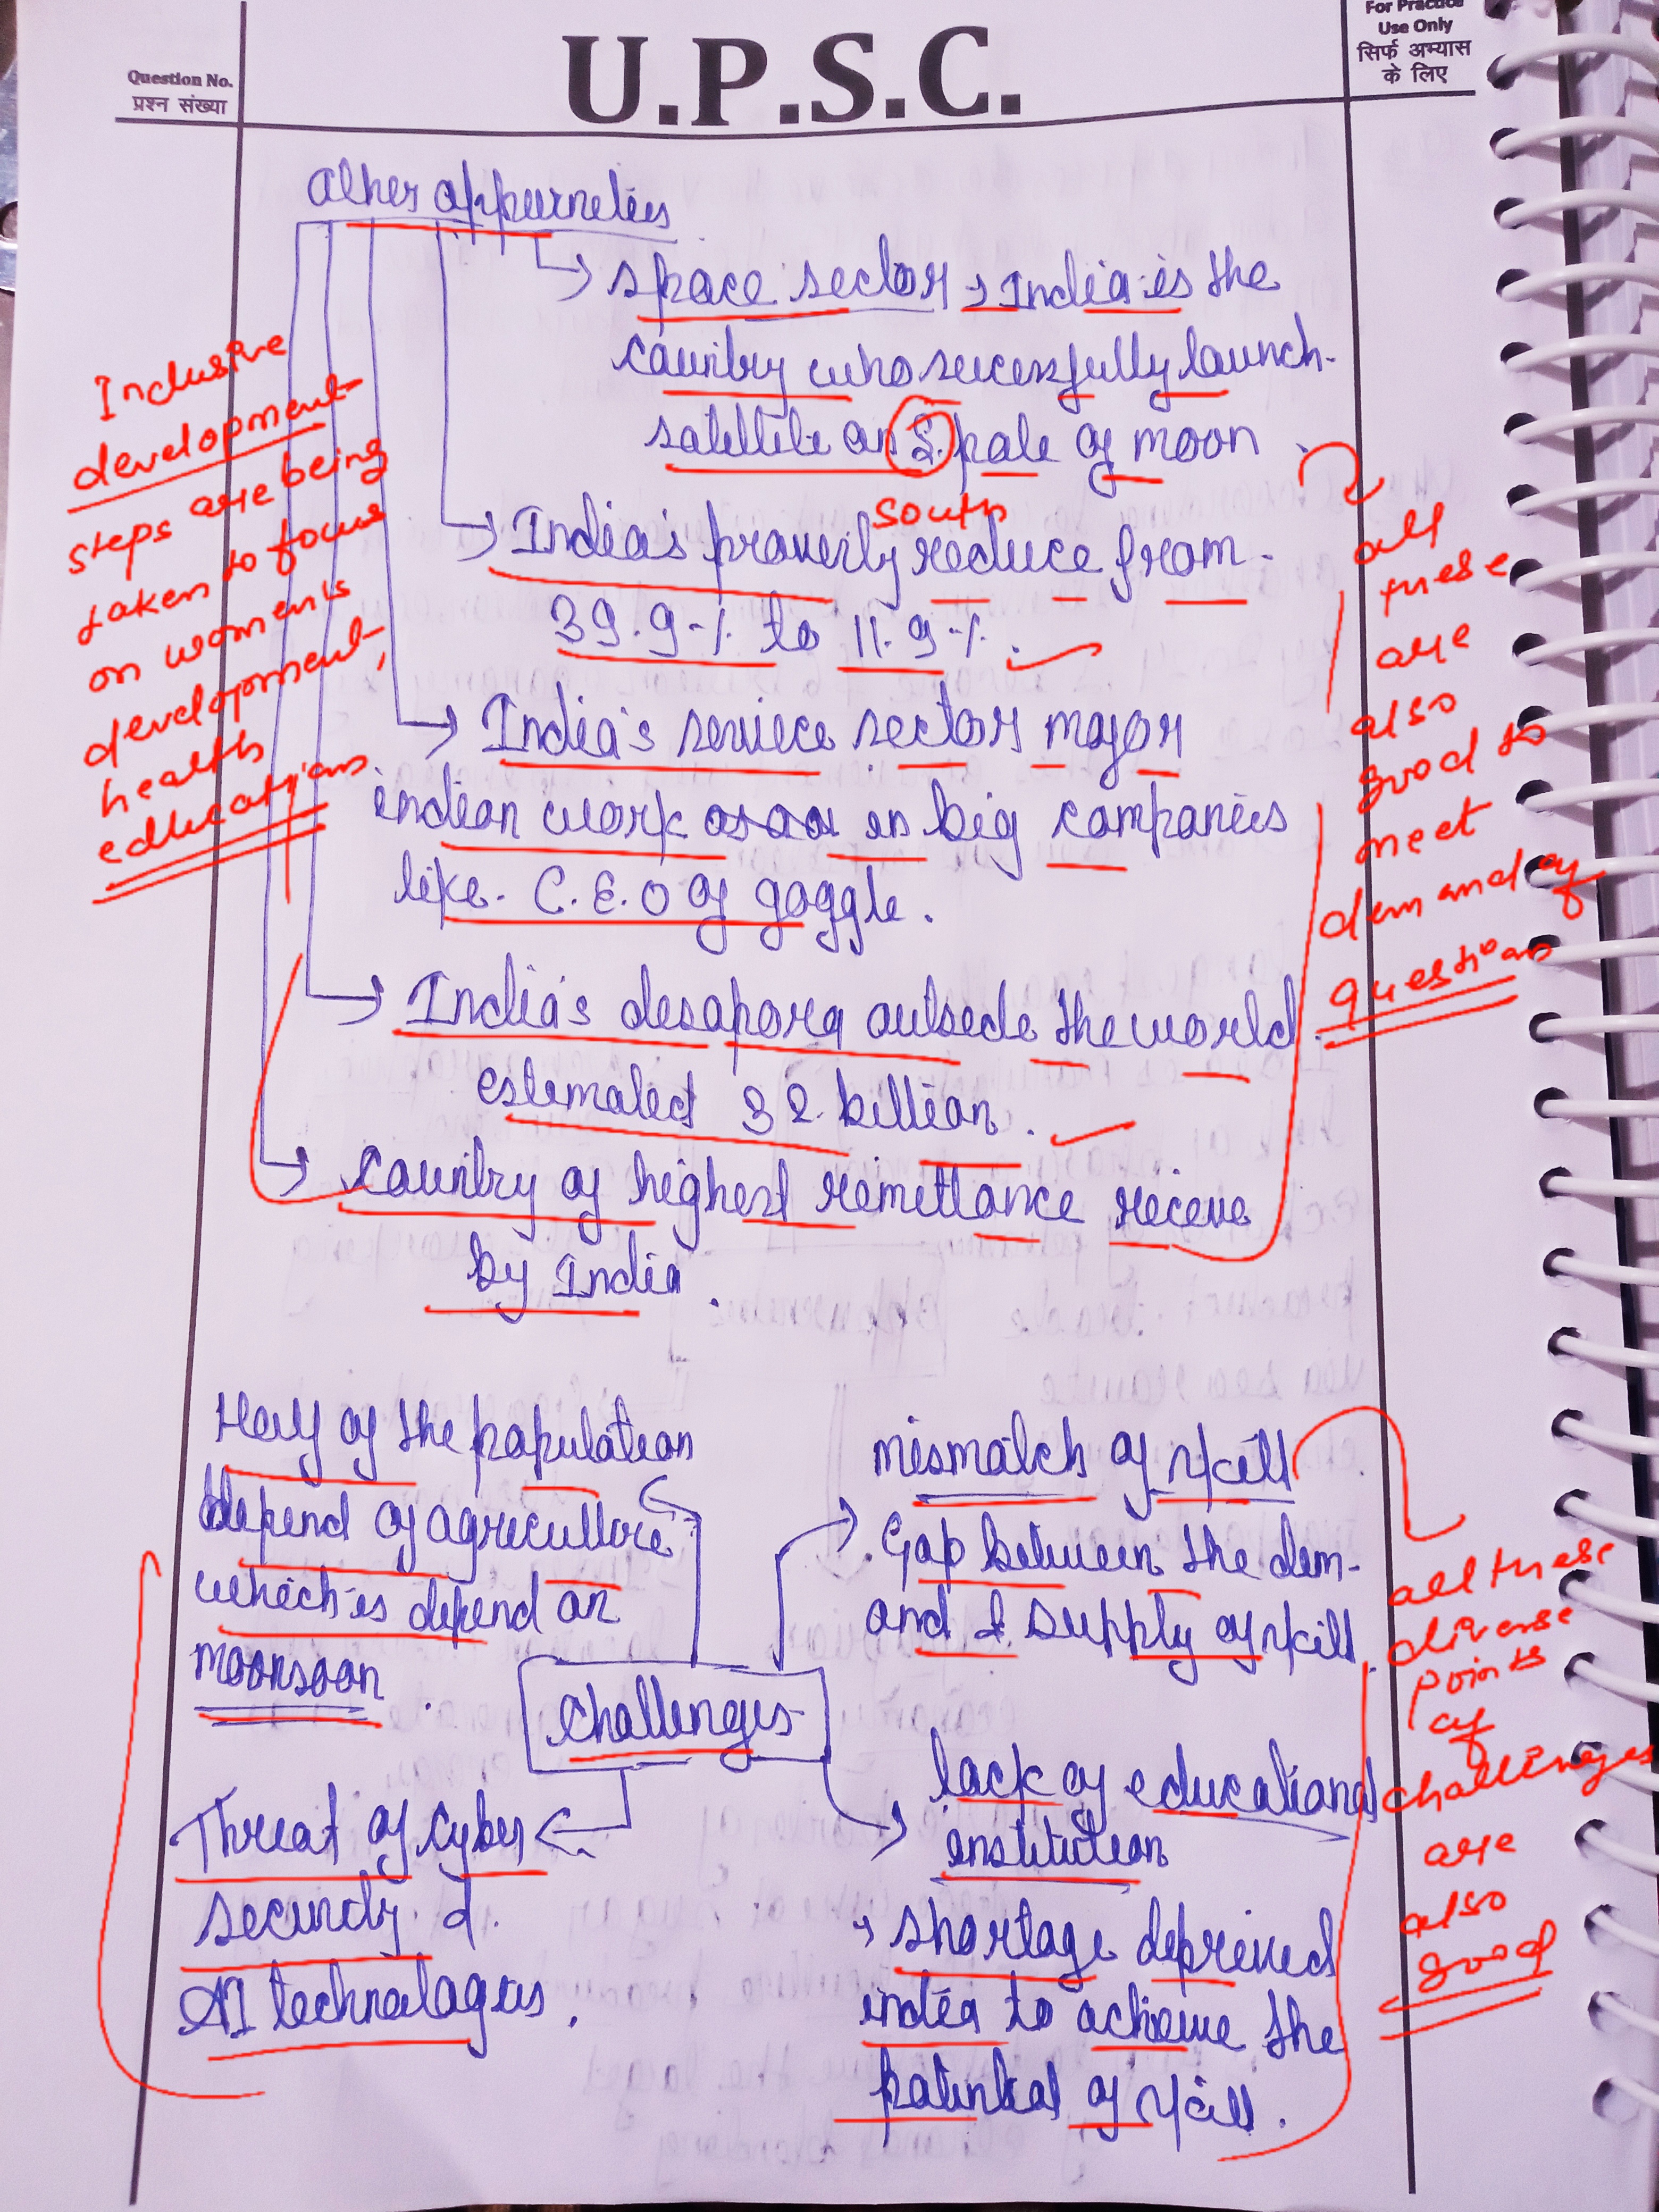 For Practice
Use Only
सिर्फ अभ्यास
के लिए
Question No.
प्रश्न संख्या
U.P.S.C.
Other oppurneties
space sector → India is the
country who sucessfully launch
satellite on S. pole of moon
south
India's proverly reduce from
39.9% to 11.9%.
India's serviece sector major
indian work as in big companies
like C.E.O of goggle.
India's desapora outsede the world
estemated 32 billion.
country of highest remittance receve
by India.
Inclusive
development
steps are being
taken to focus
on women's
development,
health
educations
all
these
are
also
good to
meet
demand of
questions
Half of the population
depend of agriculture
which is depend on
moonsoon.
mismatch of skill
Gap between the dem-
and & supply of skill.
Challenges
Threat of cyber
security &
AI technologies.
lack of educational
institution
→ shortage deprived
india to achieve the
potential of skill.
all these
diverse
points
of
challenges
are
also
good